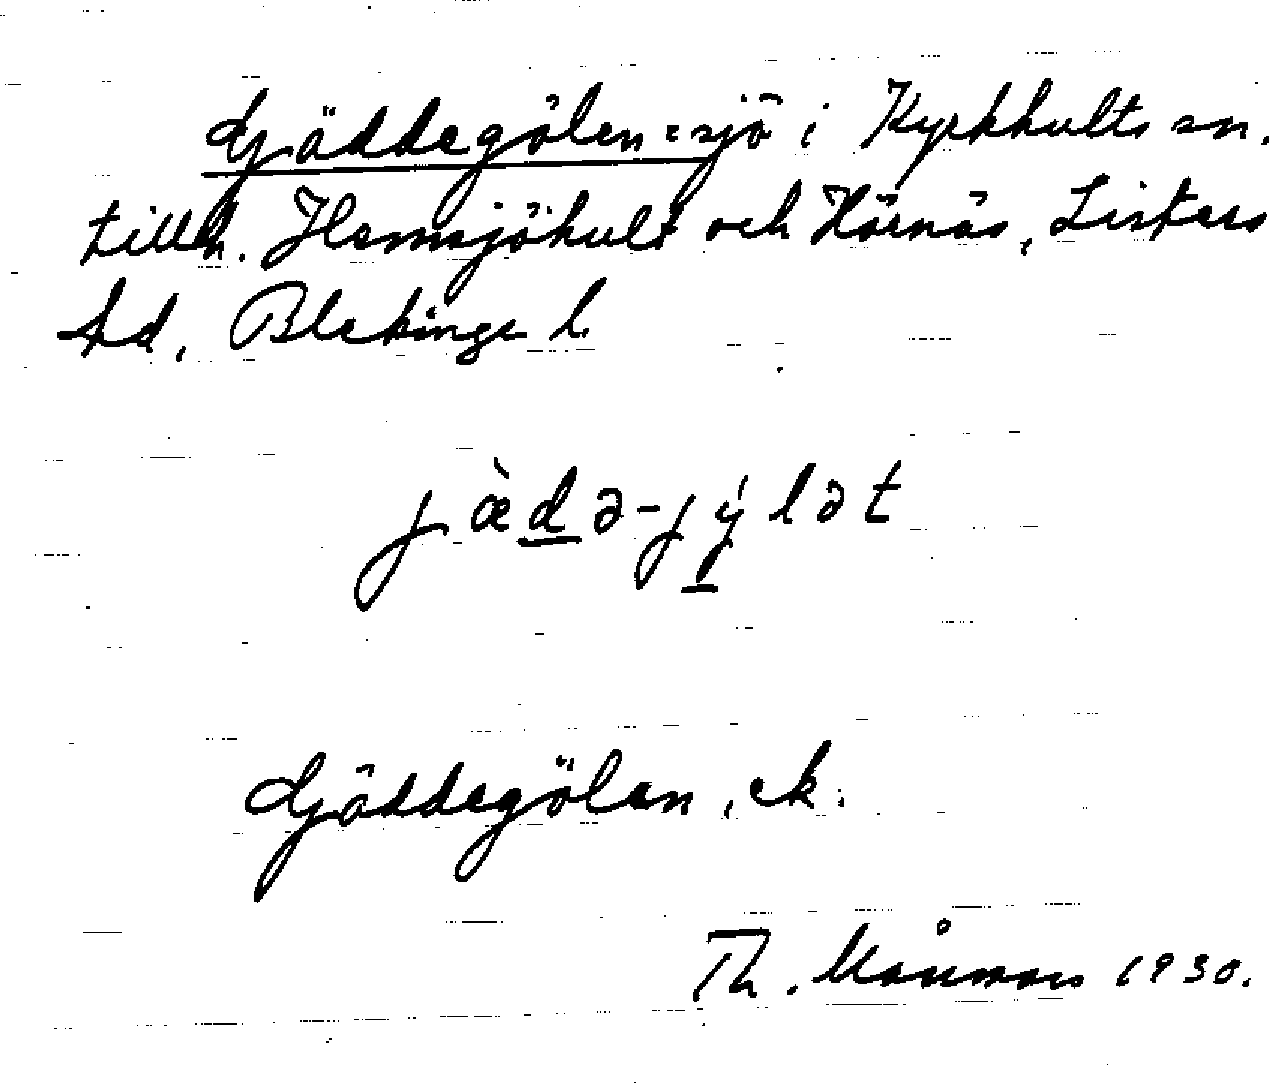 Gjäddegölen = sjö i Kyrkhults sn.
tillh. Hemsjöhult och Hörnäs, Listers
hd, Blekinge l.
jæ̀də-jýlət
Gjäddegölen, ek.
Th. Månsson 1930.